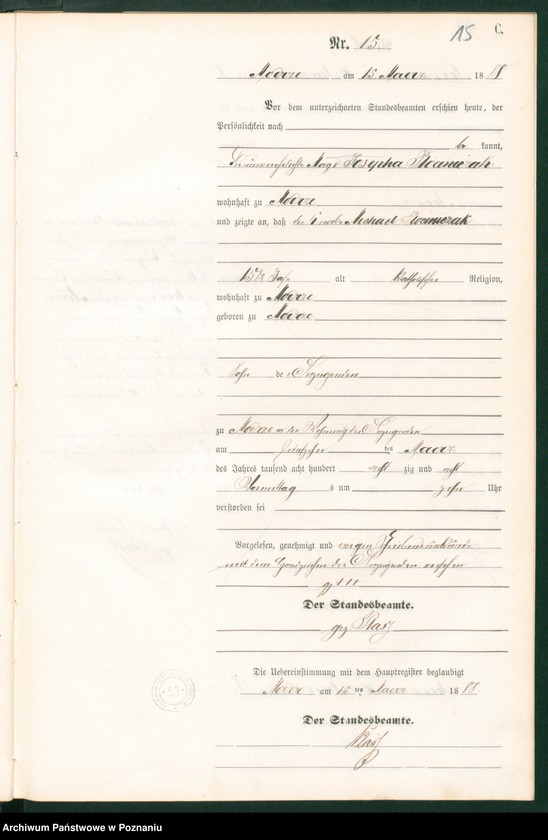 15 C.
Nr. 15.
Modrze am 15 Maerz 1888
Vor dem unterzeichneten Standesbeamten erschien heute, der
Persönlichkeit nach
be kannt,
Die unverehelichte Magd Josepha
wohnhaft zu Modrze
und zeigte an, daß der Knabe Michael
1 1/2 Jahr alt katholischer Religion,
wohnhaft zu Modrze
geboren zu Modrze
Sohn der Anzeigenden
zu Modrze in der Wohnung der Anzeigenden
am ten Maerz
des Jahres tausend acht hundert acht zig und acht
Vormittag s um zehn Uhr
verstorben sei
Vorgelesen, genehmigt und wegen
mit dem Handzeichen der Anzeigenden versehen
gz +++
Der Standesbeamte.
gez.
Die Uebereinstimmung mit dem Hauptregister beglaubigt
Modrze am 15 ten Maerz 1888.
Der Standesbeamte.
Archiwum Państwowe w Poznaniu